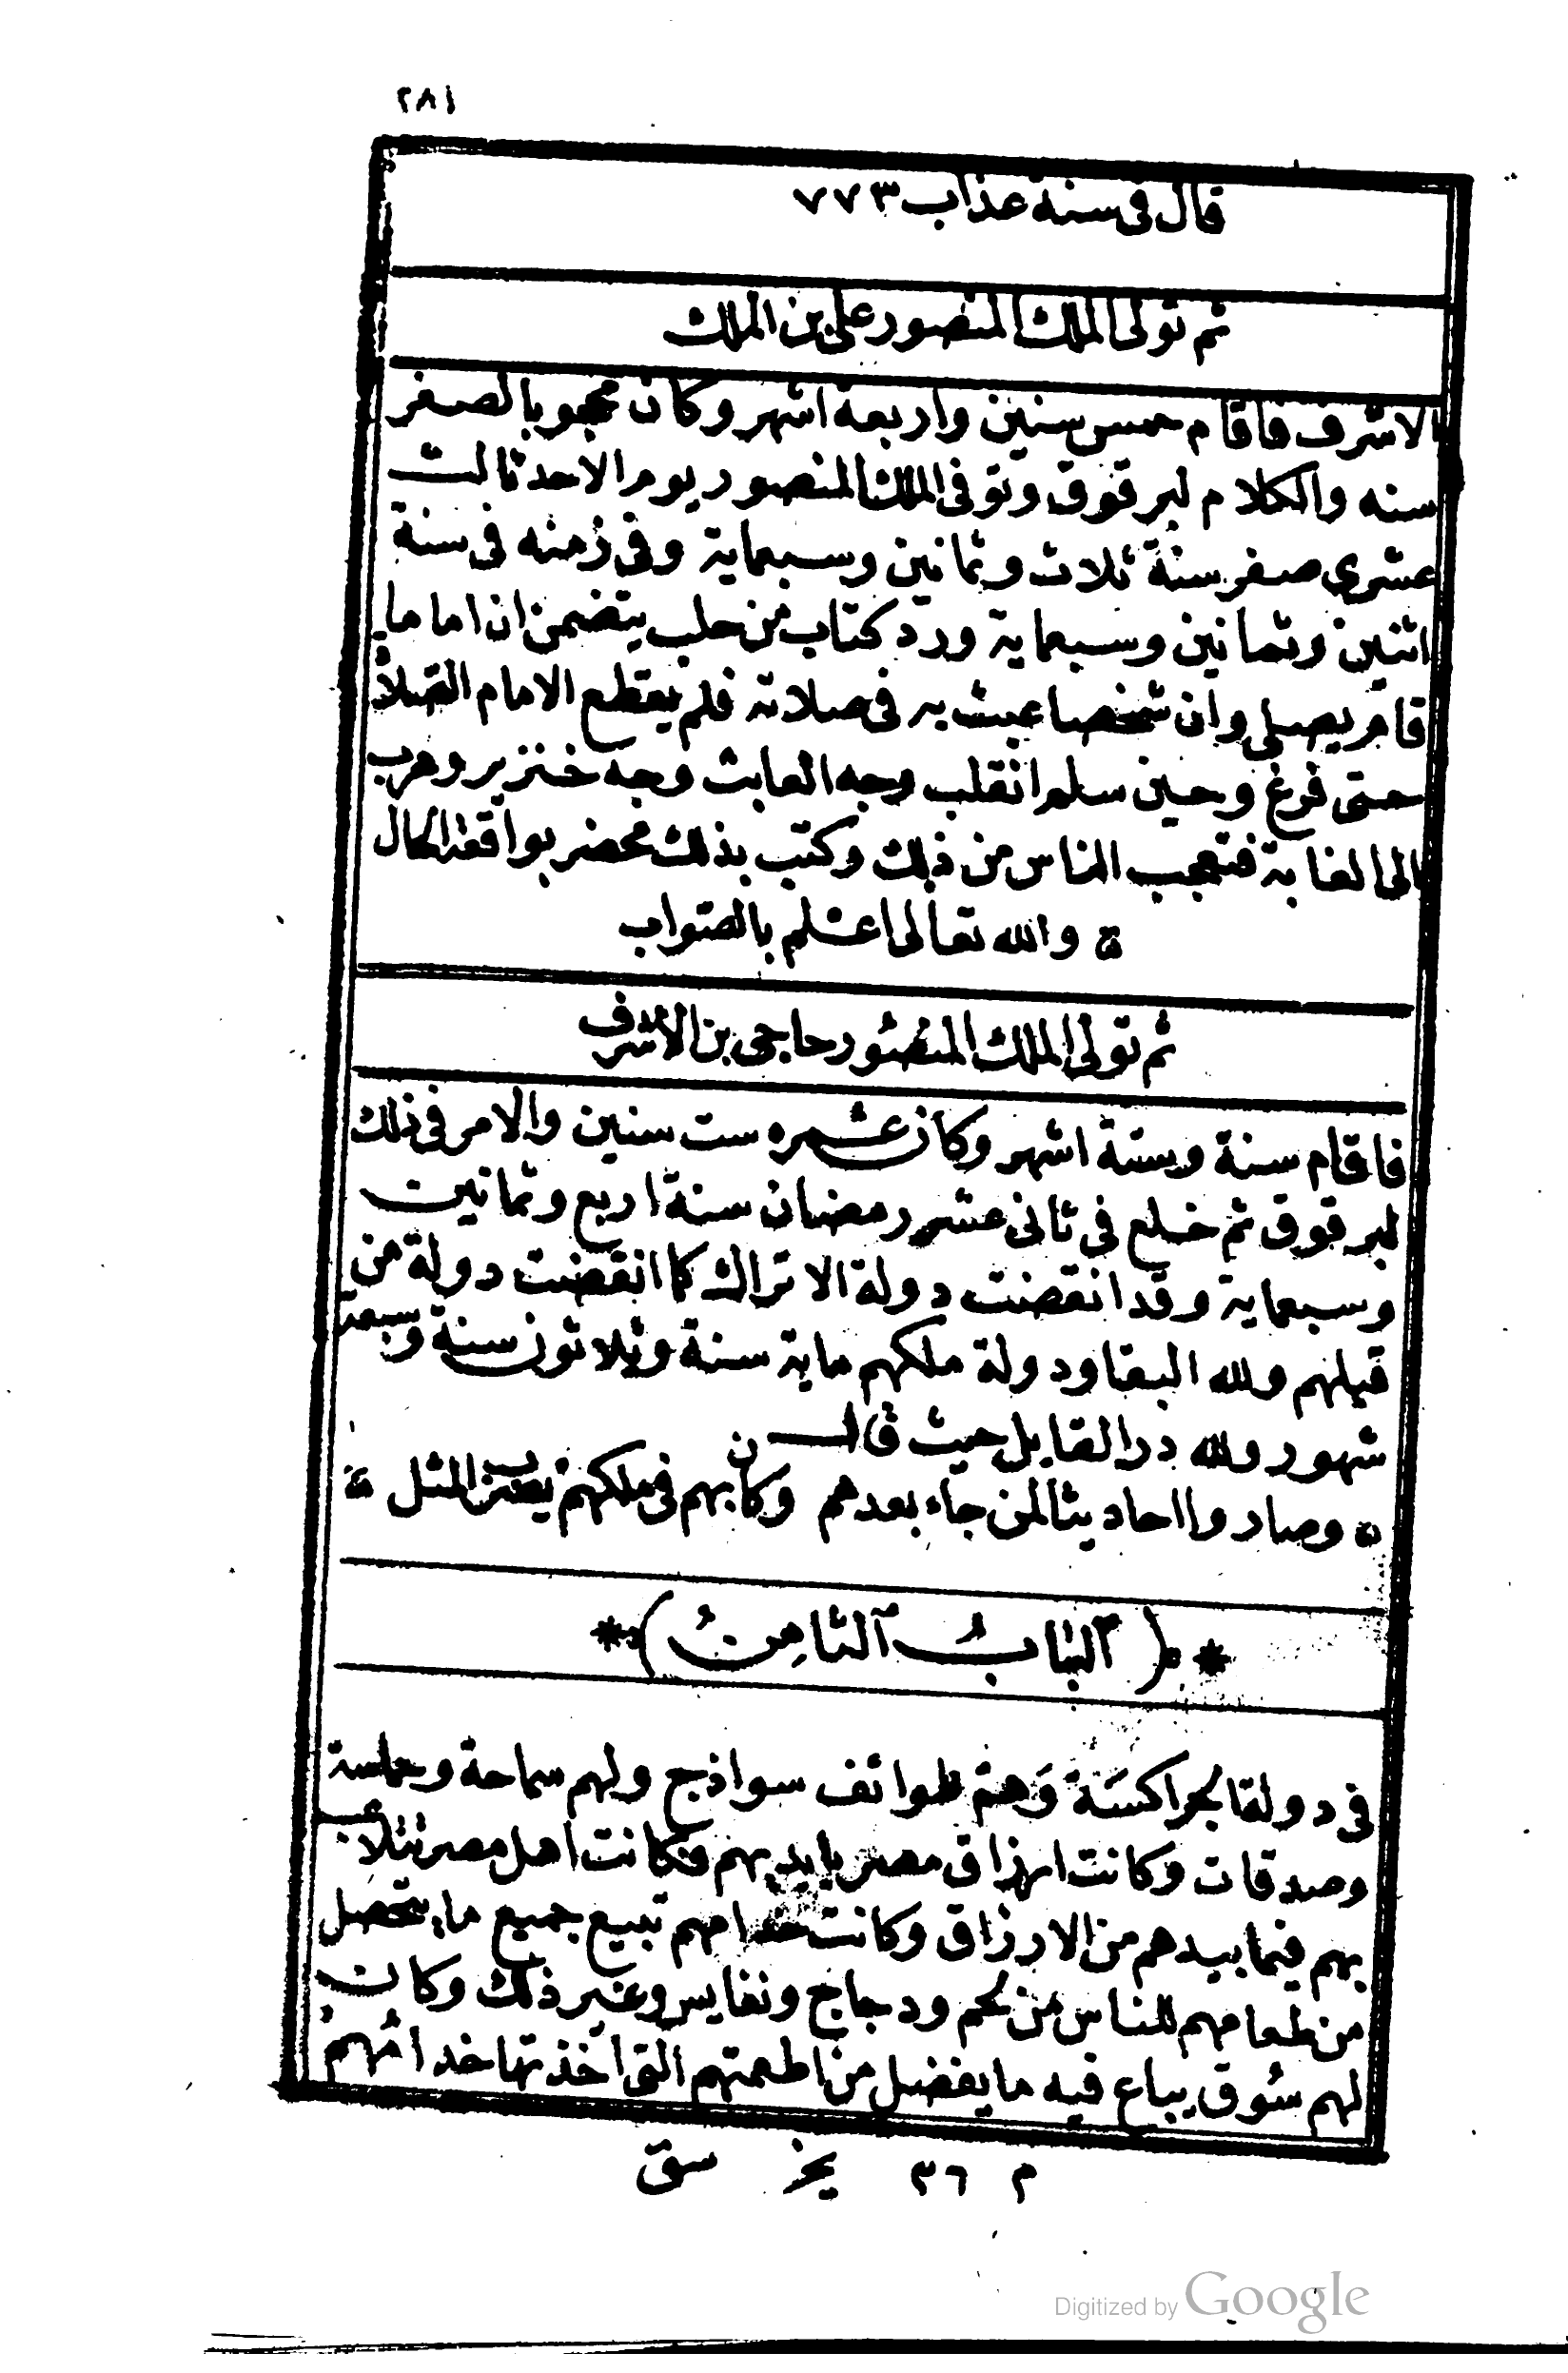 ٢٨١
قال فى سنة عذاب ٧٧٣
ثم تولى الملك المنصور على بن الملك
الاشرف فاقام خمس سنين واربعة اشهر وكان محجوبا لصغر
سنه والكلام لبرقوق وتوفى الملك المنصور يوم الاحد ثالث
عشرى صفر سنة ثلاث وثمانين وسبعماية وفى زمنه فى سنة
اثنين وثمانين وسبعماية ورد كتاب من حلب يتضمن ان اماما
قام يصلى وان شخصا عبث به فى صلاته فلم يقطع الامام الصلاة
حتى فرغ وحين سلم انقلب وجه العابث وجه خنزير وهرب
الى الغابة فتعجب الناس من ذلك وكتب بذلك محضر بواقعة الحال
والله تعالى اعلم بالصواب
ثم تولى الملك المنصور حاجى بن الاشرف
فاقام سنة وستة اشهر وكان عمره ست سنين والامر فى ذلك
لبرقوق ثم خلع فى ثانى عشر رمضان سنة اربع وثمانين
وسبعماية وقد انقضت دولة الاتراك كما انقضت دولة من
قبلهم ولله البقا ودولة ملكهم ماية سنة وثلاثون سنة وسبعة
شهور ولله در القايل حيث قال
وصاروا احاديثا لمن جاء بعدهم وكان بهم فى ملكهم يضرب المثل
*( الباب الثامن )*
فى دولة الجراكسة وهم طوائف سواذج ولهم سماحة وحماسة
وصدقات وكانت ارزاق مصر بايديهم فكانت اهل مصر تتلاعب
بهم فيما بيدهم من الارزاق وكانت خدامهم تبيع جميع ما يتحصل
من طعامهم للناس من لحم ودجاج ونفايس وغير ذلك وكان
لهم سوق يباع فيه ما يفضل من اطعمتهم التى اخذتها خدامهم
م ٣٦ يخ سق
Digitized by Google